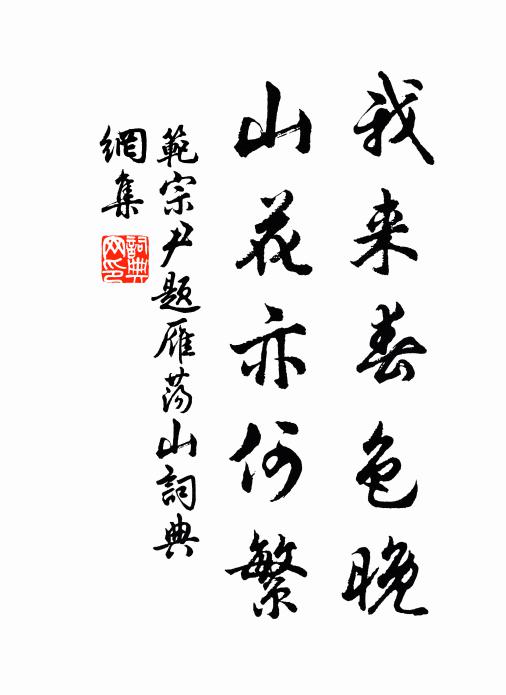 我来春色晚
山花亦何繁
範宗尹题雁荡山詞典
網集
詞典
网印